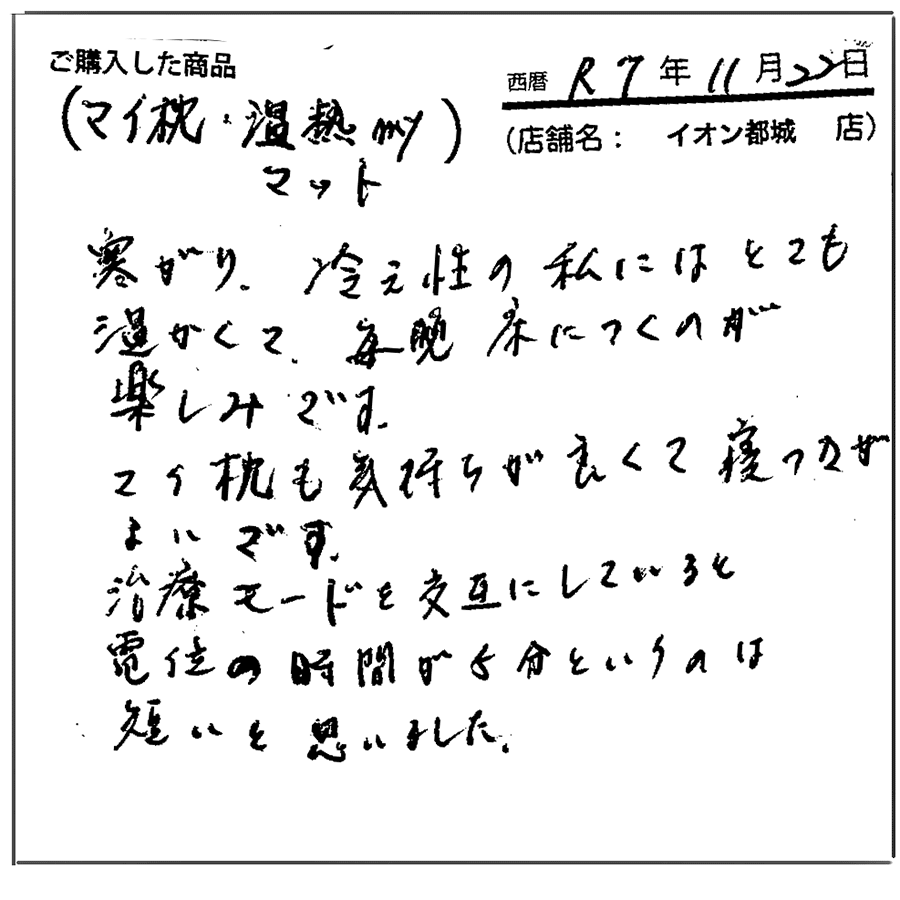 ご購入した商品
西暦 R7年11月22日
(マイ枕・温熱my)
マット
(店舗名: イオン都城 店)
寒がり、冷え性の私にはとても
温かくて、毎晩床につくのが
楽しみです。
マイ枕も気持ちが良くて寝つきが
よいです。
治療モードを交互にしていると
電位の時間が5分というのは
短いと思いました。